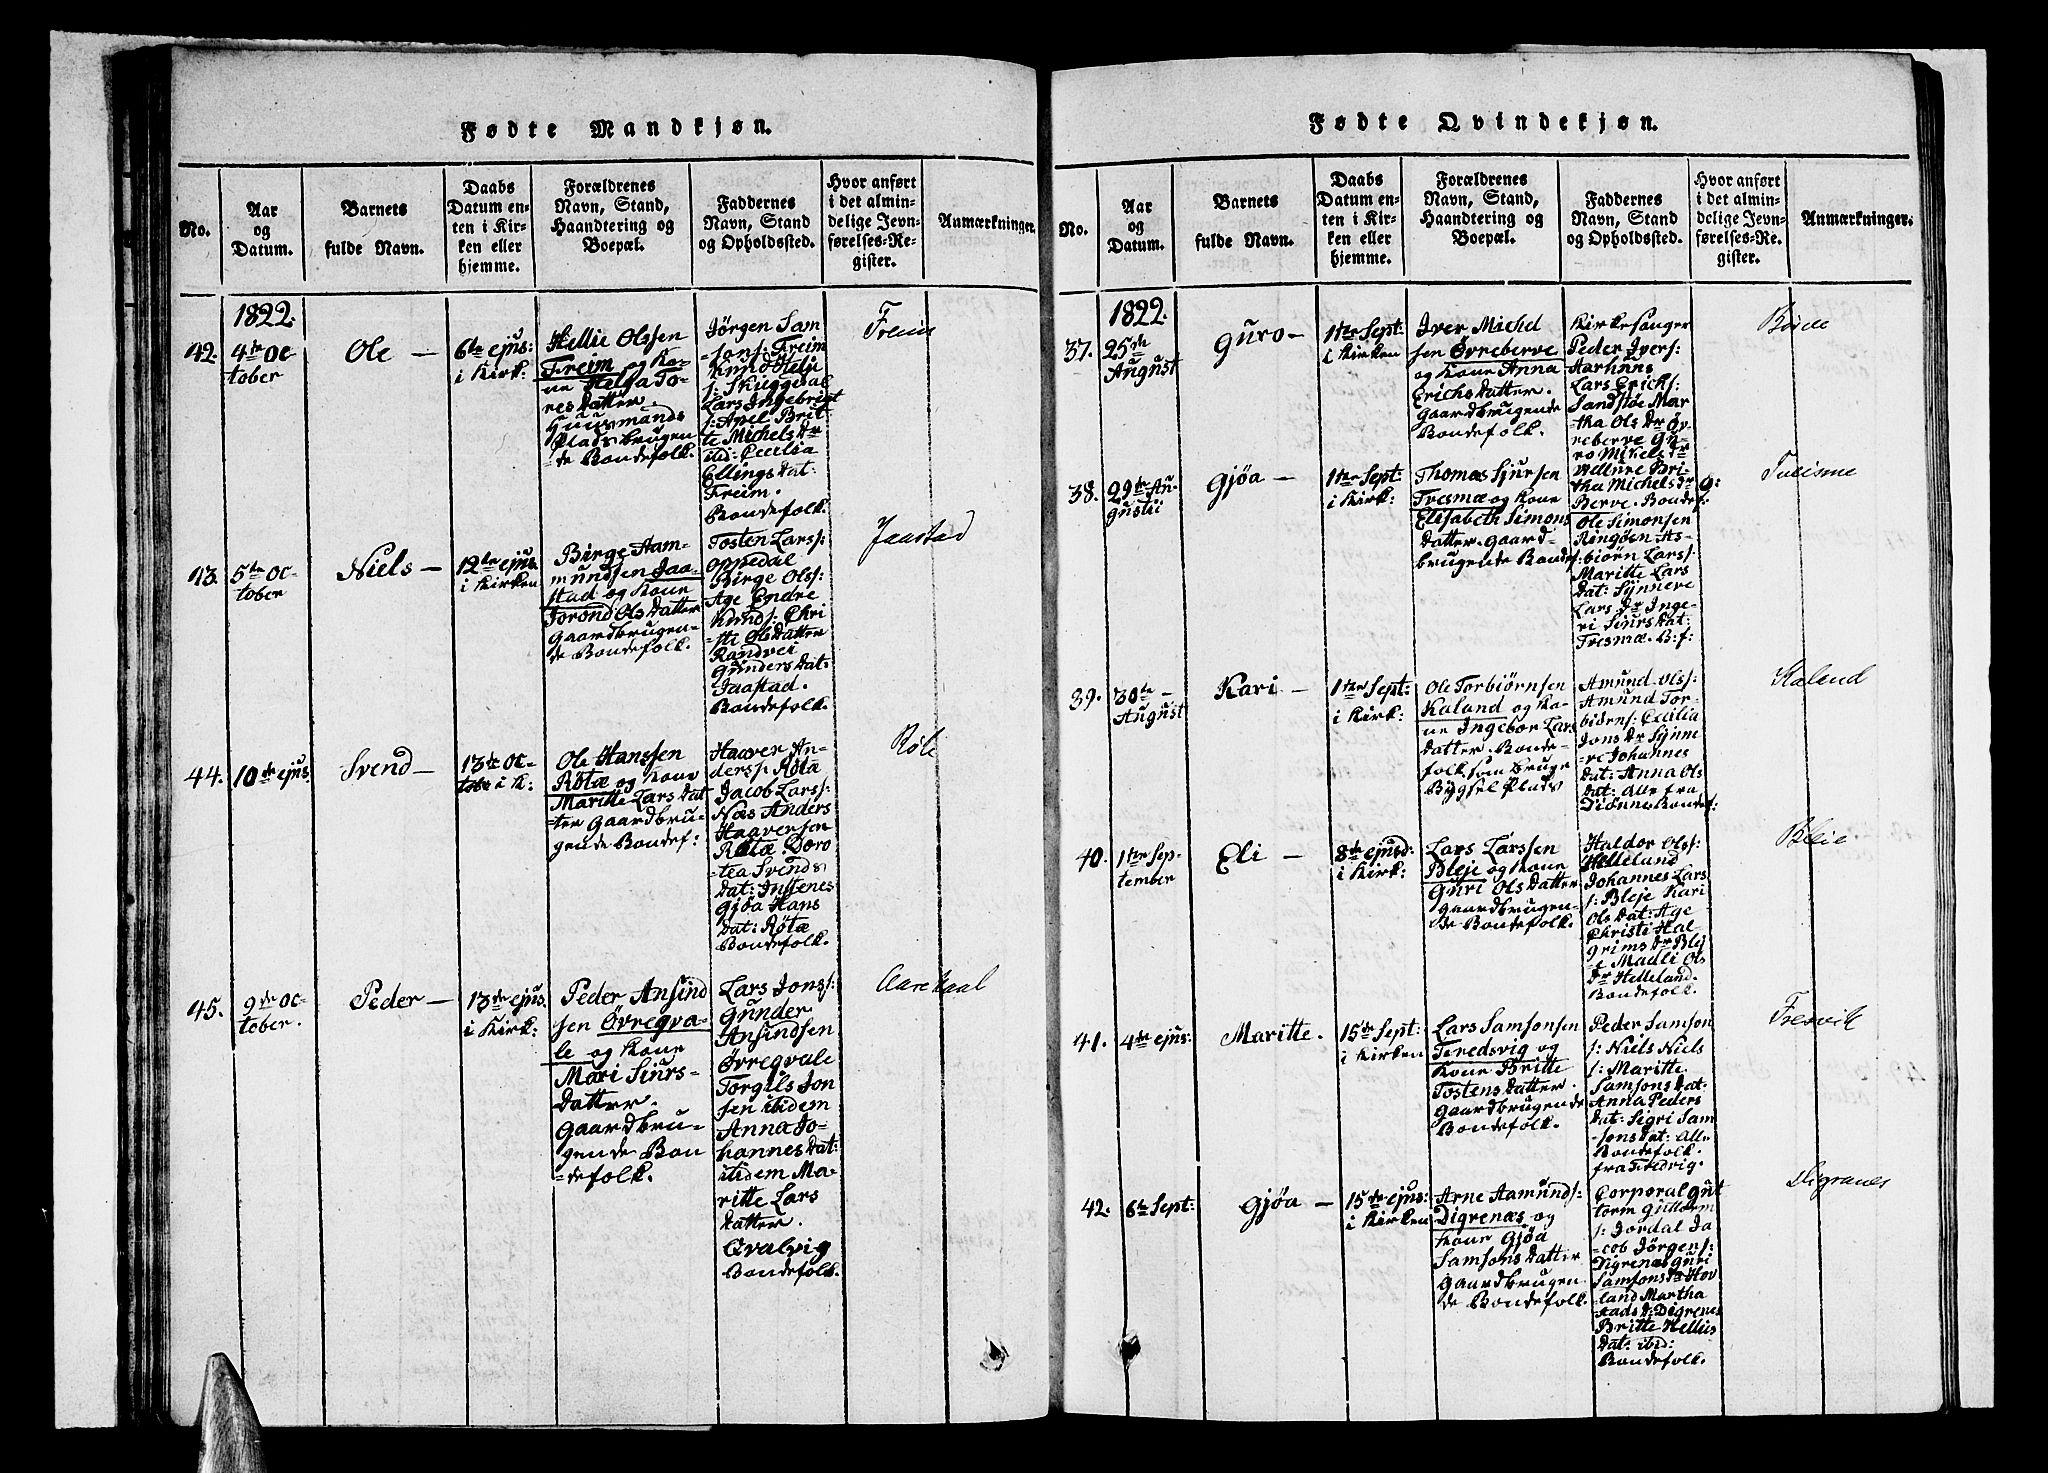 Fødte Mandkjøn.
No.
Aar
og
Datum.
Barnets
fulde Navn.
Daabs
Datum en-
ten i Kir-
ken eller
hjemme.
Forældrenes
Navn, Stand,
Haandtering og
Boepæl.
Faddernes
Navn, Stand
og Opholdssted.
Hvor anført
i det almin-
delige Jevn-
førelses-Re-
gister.
Anmærkninger.
1822.
42.
4de Oc-
tober
Ole —
6te ejus:
i Kirk:
Hellie Olssen
Freim og Ko-
ne Helga To-
resDatter.
Huusmands
Plads brugen
-de Bondefolk.
Jørgen Sam
-sons: Freim
Knud Helje
s: Skuggedal
Lars Ingebrigt
s: Apel Brit-
te Michels Dr
ibid: Cecilia
Ellings Dat:
Freim.
Bondefolk.
Freim
43.
5te Oc-
tober
Niels —
12te ejus:
i Kirken
Birge Aam-
mundsen Jaa-
stad og Kone
Torond Ols Datter
Gaardbrugen-
de Bondefolk.
Tosten Lars:
Oppedal
Birge Ols:
Age Endre
Knuds: Chri
-sti OlsDatter
Randvei
Gunders Dat:
Jaastad.
Bondefolk.
Jaastad
44.
10de ejus
Svend —
13de Oc-
tobr i K:
Ole Hanssen
Røtæ og Kone
Maritte Lars Dat
-ter Gaardbru-
gende Bondef:
Haaver An-
derss: Røtæ
Jacob Larss:
Næs Anders
Haaversen
Røtæ. Doro
-tea Svends
Dat: Instenes
Gjøa Hans
Dat: Røtæ
Bondefolk.
Røte
45.
9de Oc-
tober.
Peder —
13de ejus.
i Kirk:
Peder Ansind
sen Øvreqva-
le og Kone
Mari Siurs-
Datter.
Gaardbru-
gende Bon
-defolk.
Lars Jons:
Gunder
Ansindsen
Øvreqvale
Torgils Jon
sen itidem
Anna Jo-
hannes Dat:
itidem Ma-
ritte Lars
Datter.
Qvalvig
Bondefolk.
Fødte Qvindekjøn.
No.
Aar
og
Datum.
Barnets
fulde Navn.
Daabs
Datum en-
ten i Kir-
ken eller
hjemme.
Forældrenes
Navn, Stand,
Haandtering og
Boepæl.
Faddernes
Navn, Stand
og Opholdssted.
Hvor anført
i det almin-
delige Jevn-
førelses-Re-
gister.
Anmærkninger.
1822.
37.
25de
August
Guro —
1ste Sept:
i Kirken
Iver Michel
sen Øvreberve
og Kone Anna
Erichs Datter
Gaardbrugende
Bondefolk.
Kirkesanger
Peder Ivers:
Aarhuus
Lars Erichs:
Sandstøe Mar
tha Ols Dr Øv
reberve Gu-
ro Mikels Dr
Bri-
tha Michels Dr
Berve. Bondef:
38.
29de Au-
gusti
Gjøa —
1ste Sept:
i Kirk:
Thomas Sjursen
Tresmæ og Kone
Elisabeth Simons
Datter. Gaard-
brugende Bondef:
Ole Simonsen
Ringøen As-
biørn Larss:
Maritte Lars
Dat: Synneve
Lars Dr Inge-
ri Siurs Dat:
Tresmæ. B:f:
39.
30te —
August
Kari —
1ste Sept:
i Kirk:
Ole Torbiørnsen
Kaland og Ko-
ne Ingebor Lars
Datter. Bonde-
folk som bruge
Bygsel Plads
Amund Olss:
Amund Tor-
biørns: Cecilia
Jons Dr Synne
-ve Johannes
Dat: Anna Ols
Dat: Alle fra
Diønne Bondef:
Kaland
40.
1ste Sep-
tember
Eli —
8de ejusd:
i Kirk:
Lars Larssen
Bleje og Kone
Guri Ols Datter
Gaardbrugen-
de Bondefolk.
Haldor Olss:
Helleland
Johannes Lars
s: Bleje Kari
Ols Dat: Age
Christi Hal
grims Dr Blej
-e Madli Ols
Dr Helleland.
Bondefolk.
Bleie
41.
4de ejus:
Maritte.
15de Sept:
i Kirken
Lars Samsonsen
Tredsvig og
Kone Britte
Tostens Datter.
Gaardbrugende
Bondefolk.
Peder Samson
s: Niels Niels
s: Maritte
Samsons Dat:
Anna Peders
Dat: Sigri Sam
-sons Dat: Alle
Bondefolk.
fra Tredsvig.
Tresvik
42.
6te Sept:
Gjøa —
15de ejus:
i Kirken
Arne Aamunds:
Digrenæs og
Kone Gjøa
Samsons Datter
Gaardbrugen
de Bondefolk.
Corporal Gut
torm Guttorm
s: Jordal Ja
-cob Jørgens:
Digrenæs Guri
Samsons Dr Hov
land Martha
-aads D: Digrenes
Britte Hellies
Dat: ibid:
Bondefolk.
Digranes